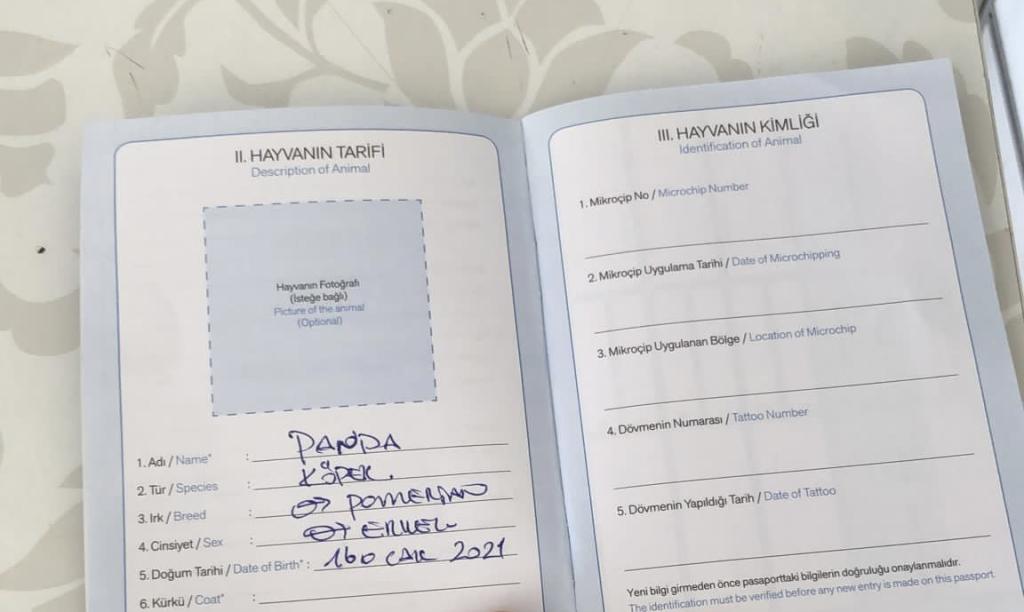 II. HAYVANIN TARİFİ
Description of Animal
Hayvanın Fotoğrafı
(İsteğe bağlı)
Picture of the animal
(Optional)
1. Adı / Name* : PANDA
2. Tür / Species : KÖPEK.
3. Irk / Breed : POMERIAN
4. Cinsiyet / Sex : ERKEK
5. Doğum Tarihi / Date of Birth* : 2021
6. Kürkü / Coat* :
III. HAYVANIN KİMLİĞİ
Identification of Animal
1. Mikroçip No / Microchip Number
2. Mikroçip Uygulama Tarihi / Date of Microchipping
3. Mikroçip Uygulanan Bölge / Location of Microchip
4. Dövmenin Numarası / Tattoo Number
5. Dövmenin Yapıldığı Tarih / Date of Tattoo
Yeni bilgi girmeden önce pasaporttaki bilgilerin doğruluğu onaylanmalıdır.
The identification must be verified before any new entry is made on this passport.